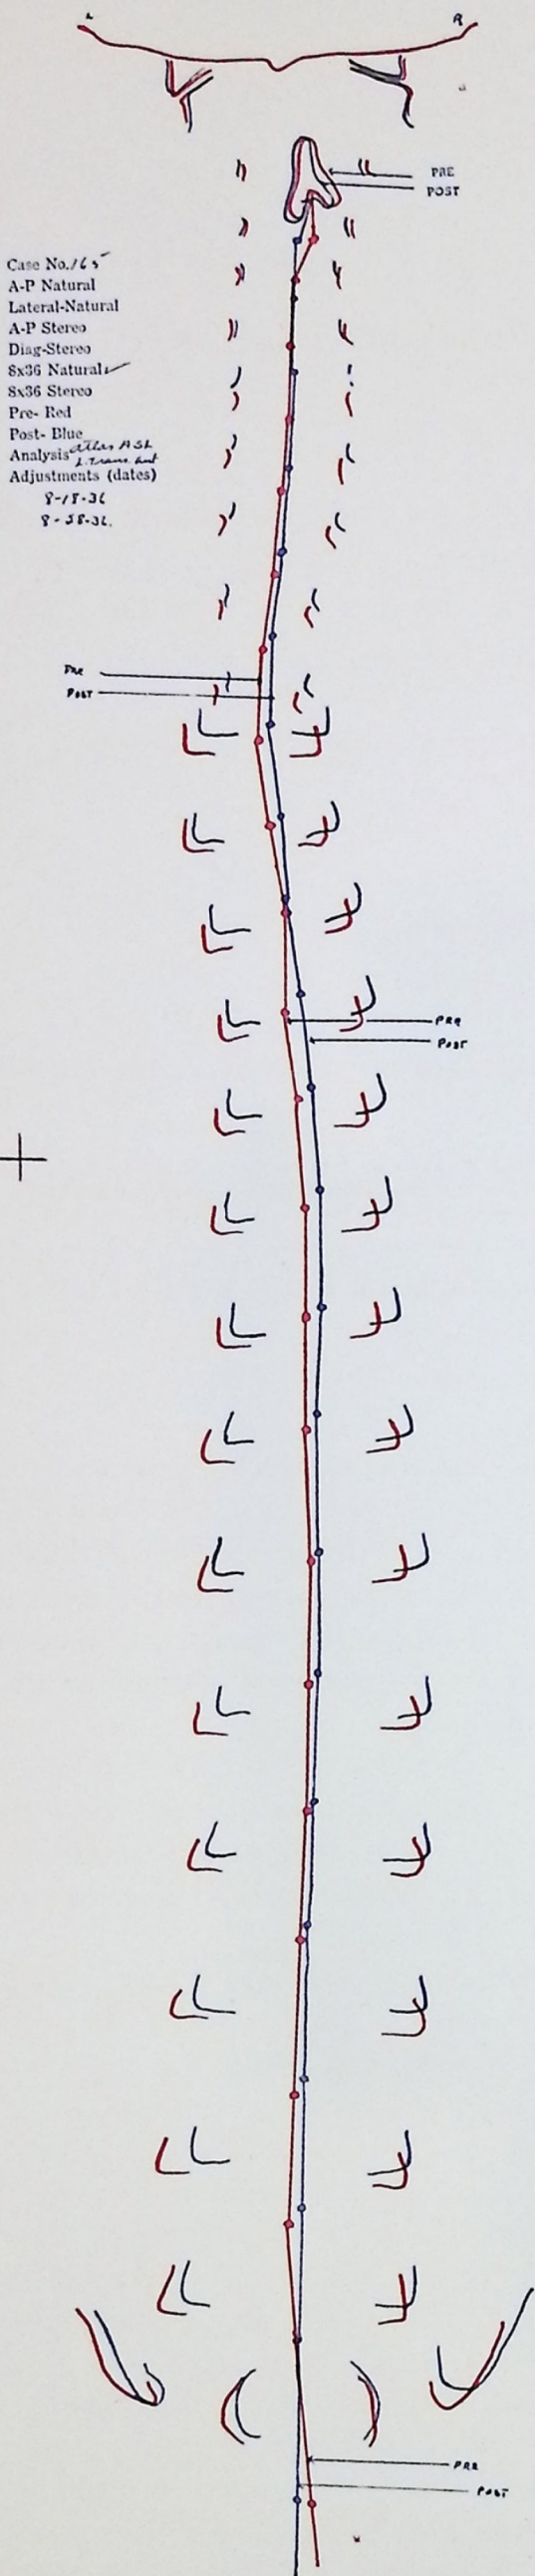 L R
PRE
POST
Case No. 165
A-P Natural
Lateral-Natural
A-P Stereo
Diag-Stereo
8x36 Natural ✓
8x36 Stereo
Pre- Red
Post- Blue
Analysis Atlas ASL
L. Trans.
Adjustments (dates)
8-18-36
PRE
POST
PRE
POST
PRE
POST